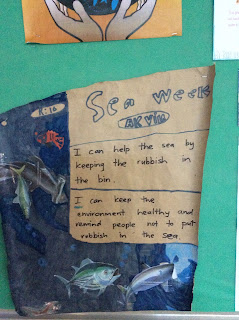 Sea week
I can help the sea by
keeping the rubbish in
the bin.
I can keep the
environment healthy and
remind people not to put
rubbish in the sea.